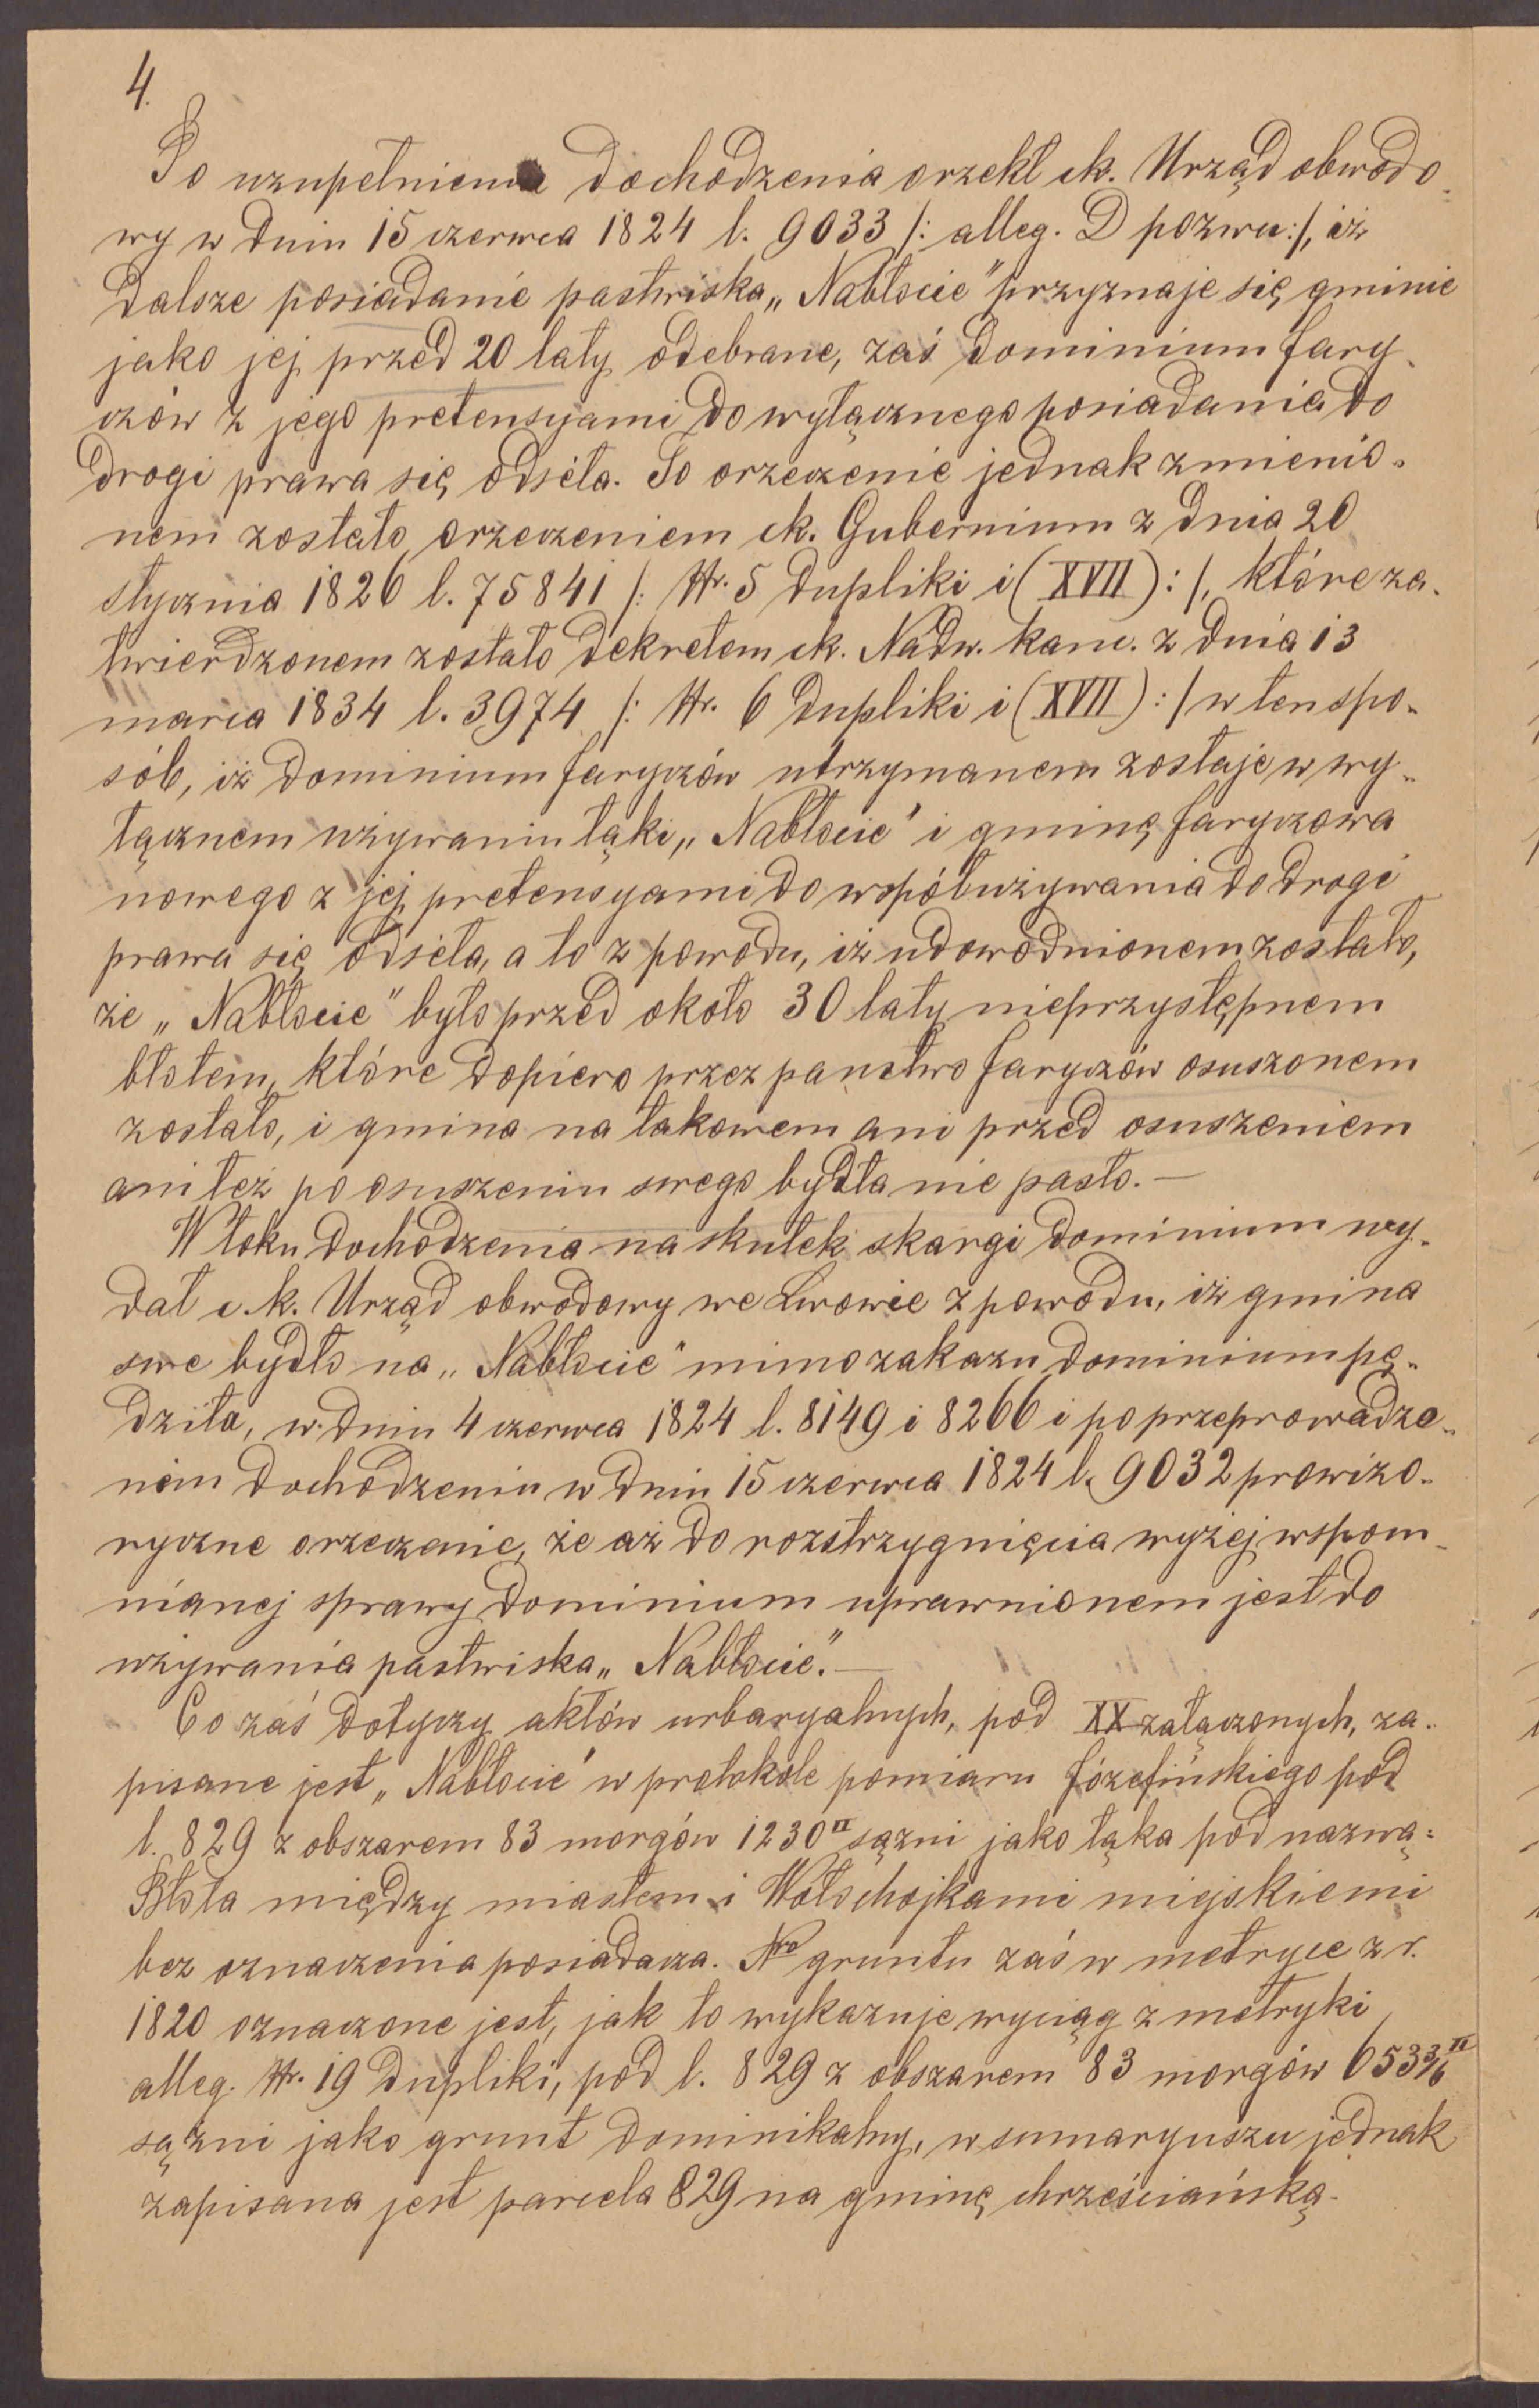 4.
Po uzupełnieniu dochodzenia orzekł ck. Urząd obwodo-
wy w dniu 15 czerwca 1824 l. 9033 /: alleg. D pozwu:/, iż
dalsze posiadanie pastwiska „Nabłocie" przyznaje się gminie
jako jej przed 20 laty odebrane, zaś dominium Jary-
czów z jego pretensyami do wyłącznego posiadania do
drogi prawa się odseła. To orzeczenie jednak zmienio-
nem zostało orzeczeniem ck. Gubernium z dnia 20
stycznia 1826 l. 75841 /: Nr. 5 dupliki i (XVII):/, które za-
twierdzonem zostało dekretem ck. Nadw. kanc. z dnia 13
marca 1834 l. 3974 /: Nr. 6 dupliki i (XVII):/ w ten spo-
sób, iż dominium Jaryczów utrzymanem zostaje w wy-
łącznem używaniu łąki „Nabłocie" i gminę Jaryczowa
nowego z jej pretensyami do współużywania do drogi
prawa się odseła, a to z powodu, iż udowodnionem zostało,
że „Nabłocie" było przed około 30 laty nieprzystępnem
błotem, które dopiero przez państwo Jaryczów osuszonem
zostało, i gmina na takowem ani przed osuszeniem
ani też po osuszeniu swego bydła nie pasła. —
W toku dochodzenia na skutek skargi dominium wy-
dał c. k. Urząd obwodowy we Lwowie z powodu, iż gmina
swe bydło na „Nabłocie" mimo zakazu dominium pę-
dziła, w dniu 4 czerwca 1824 l. 8149 i 8266 i po przeprowadzo-
nem dochodzeniu w dniu 15 czerwca 1824 l. 9032 prowizo-
ryczne orzeczenie, że aż do rozstrzygnięcia wyżej wspom-
nianej sprawy dominium uprawnionem jest do
używania pastwiska „Nabłocie". —
Co zaś dotyczy aktów urbaryalnych, pod XX załączonych, za-
pisane jest „Nabłocie" w protokole pomiaru Józefińskiego pod
l. 829 z obszarem 83 morgów 1230 □ sążni jako łąka pod nazwą:
Błota między miastem i Wołochojkami miejskiemi
bez oznaczenia posiadacza. Nro gruntu zaś w metryce z r.
1820 oznaczone jest, jak to wykazuje wyciąg z metryki
alleg. Nr. 19 dupliki, pod l. 829 z obszarem 83 morgów 653 3/6 □
sążni jako grunt dominikalny, w sumaryuszu jednak
zapisana jest parcela 829 na gminę chrześciańską.